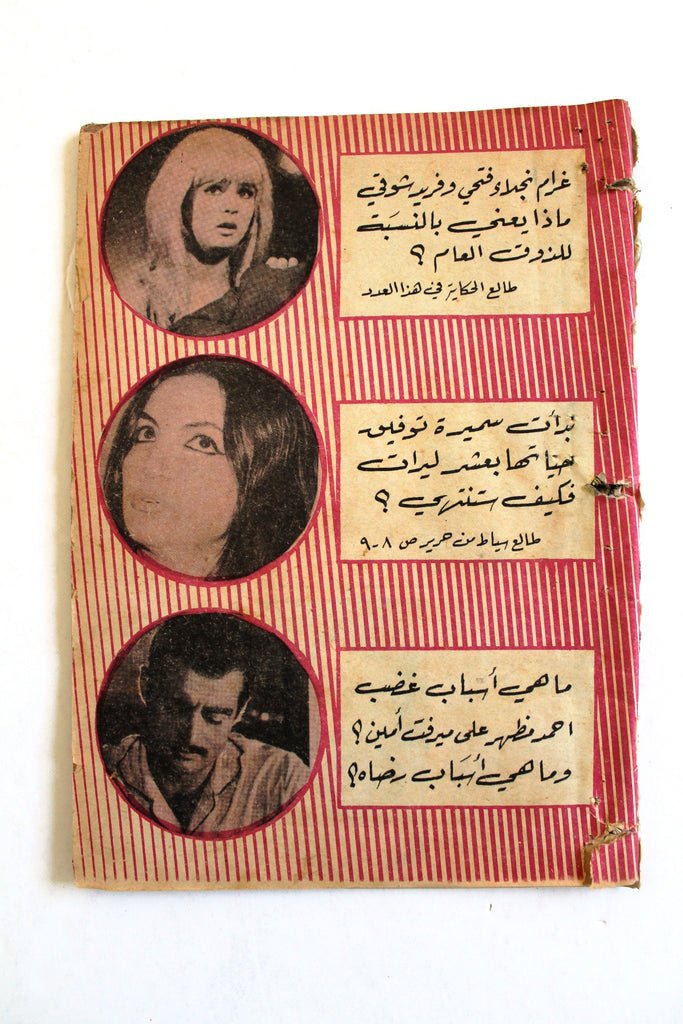 غرام نجلاء فتحي وفريد شوقي
ماذا يعني بالنسبة
للذوق العام ؟
طالع الحكاية في هذا العدد
بدأت سميرة توفيق
حياتها بعشر ليرات
فكيف ستنتهي ؟
طالع سياط من حرير ص ٨-٩
ما هي أسباب غضب
احمد مظهر على ميرفت أمين ؟
وما هي أسباب رضاه ؟